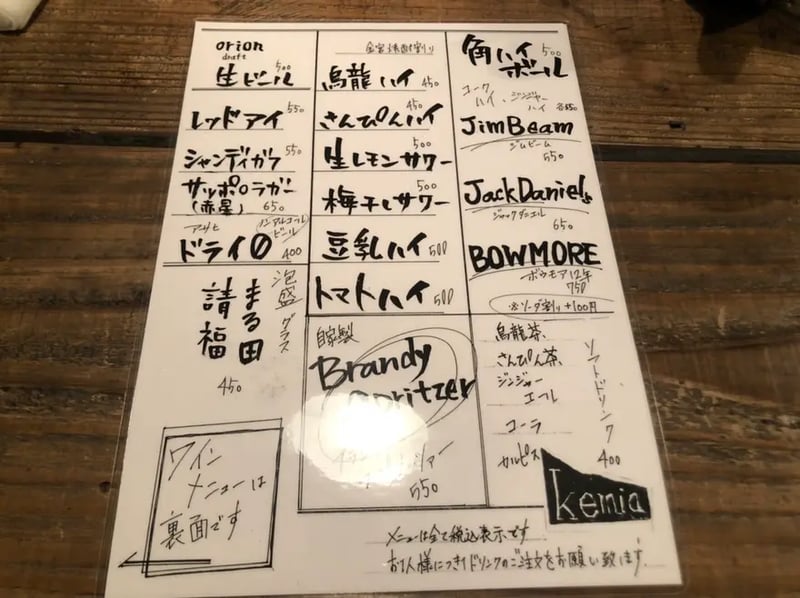 orion
draft
生ビール 500
レッドアイ 550
シャンディガフ 550
サッポロラガー
(赤星) 650
アサヒ
ノンアルコール
ビール
ドライ0 400
泡盛 グラス
まる田
請福
450
ワイン
メニューは
裏面です
烏龍ハイ 450
さんぴんハイ 450
生レモンサワー 500
梅干しサワー 500
豆乳ハイ 500
トマトハイ 500
自家製
Brandy
Spritzer
550
角ハイ 500
ボール
コーク
ハイ、ジンジャー
ハイ 各550
JimBeam
ジムビーム
550
JackDaniel's
ジャックダニエル
650
BOWMORE
ボウモア12年
750
※ソーダ割り+100円
ソフトドリンク
烏龍茶、
さんぴん茶、
ジンジャー
エール
コーラ
カルピス 400
kemia
メニューは全て税込表示です
お1人様につき1ドリンクのご注文をお願い致します.